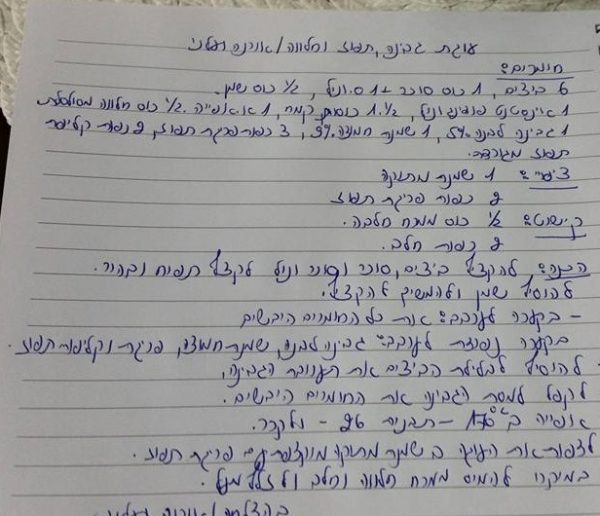 עוגת גבינה, תפוז וחלווה/אורנה ועלני
חומרים:
6 ביצים, 1 כוס סוכר + 1 ס.וניל, 1/2 כוס שמן.
1 אינסטנט פודינג וניל, 1.1/2 כוסות קמח, 1 א.אפייה. 1/2 כוס חלווה מסולסלת
1 גבינה לבנה 5%, 1 שמנת חמוצה 9%, 3 כפות פריגת תפוז, 2 כפות קליפת
תפוז מגוררת.
ציפוי: 1 שמנת מתוקה
2 כפות פריגת תפוז
קישוט: 1/2 כוס ממרח חלבה.
2 כפות חלב.
הכנה: להקציף ביצים, סוכר וסוכר וניל לקצף תפוח ובהיר.
להוסיף שמן ולהמשיך להקציף.
- בקערה לערבב: את כל החומרים היבשים
בקערה נפרדת לערבב: גבינה לבנה, שמנת חמוצה, פריגת וקליפת תפוז.
להוסיף לבלילת הביצים את תערובת הגבינה,
לקפל למסת הגבינה את החומרים היבשים.
אפייה ב 170° - תבנית 26 - ולקרר.
לצפות את העוגה ב שמנת מתוקה מוקצפת עם פריגת תפוז.
במיקרו להמיס ממרח חלווה וחלב ולזלף מעל.
בהצלחה/אורנה ועלני